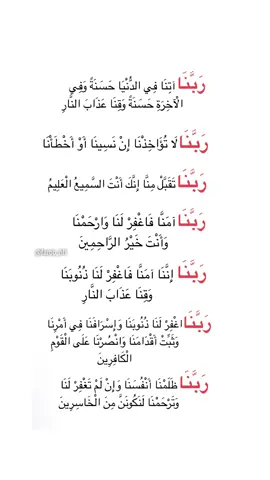 رَبَّنَا اٰتِنَا فِي الدُّنْيَا حَسَنَةً وَفِي
الْاٰخِرَةِ حَسَنَةً وَقِنَا عَذَابَ النَّارِ
رَبَّنَا لَا تُؤَاخِذْنَا اِنْ نَسِينَا اَوْ اَخْطَأْنَا
رَبَّنَا تَقَبَّلْ مِنَّا اِنَّكَ اَنْتَ السَّمِيعُ الْعَلِيمُ
رَبَّنَا اٰمَنَّا فَاغْفِرْ لَنَا وَارْحَمْنَا
وَاَنْتَ خَيْرُ الرَّاحِمِينَ
رَبَّنَا اِنَّنَا اٰمَنَّا فَاغْفِرْ لَنَا ذُنُوبَنَا
وَقِنَا عَذَابَ النَّارِ
رَبَّنَا اغْفِرْ لَنَا ذُنُوبَنَا وَاِسْرَافَنَا فِي اَمْرِنَا
وَثَبِّتْ اَقْدَامَنَا وَانْصُرْنَا عَلَى الْقَوْمِ
الْكَافِرِينَ
رَبَّنَا ظَلَمْنَا اَنْفُسَنَا وَاِنْ لَمْ تَغْفِرْ لَنَا
وَتَرْحَمْنَا لَنَكُونَنَّ مِنَ الْخَاسِرِينَ